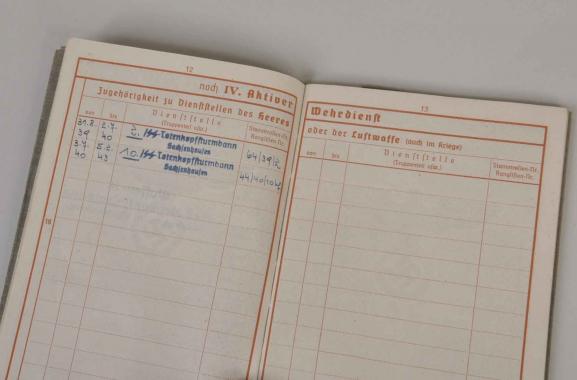 12
noch IV. Aktiver
Zugehörigkeit zu Dienststellen des Heeres
von bis Dienststelle (Truppenteil usw.) Stammrollen-Nr. Ranglisten-Nr.
31.8. 39 2.7. 40 2. SS Totenkopfsturmbann Sachsenhausen 64/39/2
3.7. 40 5.2. 43 10. SS Totenkopfsturmbann Sachsenhausen
13
Wehrdienst
oder der Luftwaffe (auch im Kriege)
von bis Dienststelle (Truppenteil usw.) Stammrollen-Nr. Ranglisten-Nr.